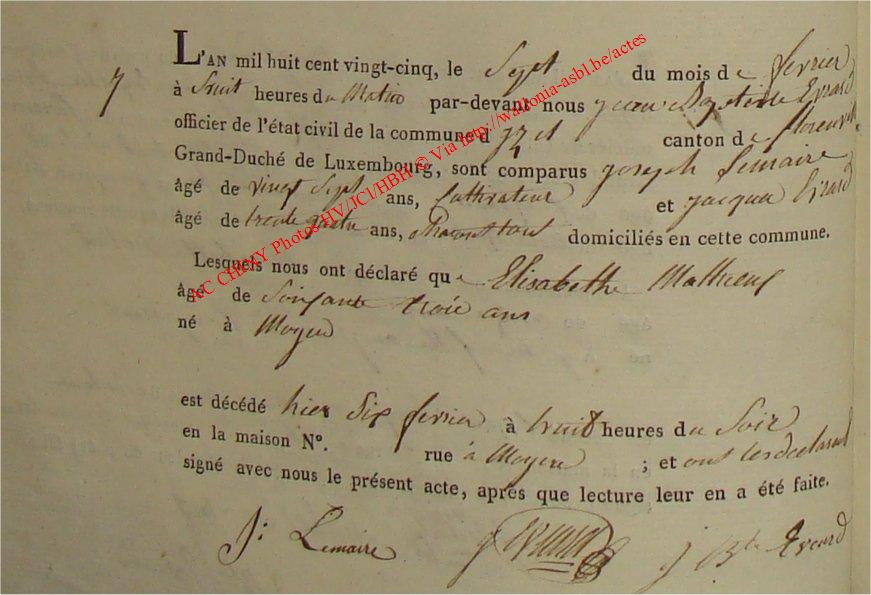 7
L'AN mil huit cent vingt-cinq, le Sept du mois de fevrier
à huit heures du Matin par-devant nous jean Baptiste Evrard
officier de l'état civil de la commune d canton de florenville
Grand-Duché de Luxembourg, sont comparus joseph Lemaire
âgé de vingt Sept ans, Cultivateur et jacque Evrard
âgé de trente quatre ans, domiciliés en cette commune.
Lesquels nous ont déclaré que Elisabethe Mathieux
âgé de Soixante trois ans
né à Moyen
est décédé hier Six fevrier à huit heures du Soir
en la maison N°. rue à Moyen ; et ont les declarant
signé avec nous le présent acte, après que lecture leur en a été faite.
J: Lemaire j Evrard j Bte Evrard
AC CHINY Photos HV/JCl/HBH © Via http://wallonia-asbl.be/actes